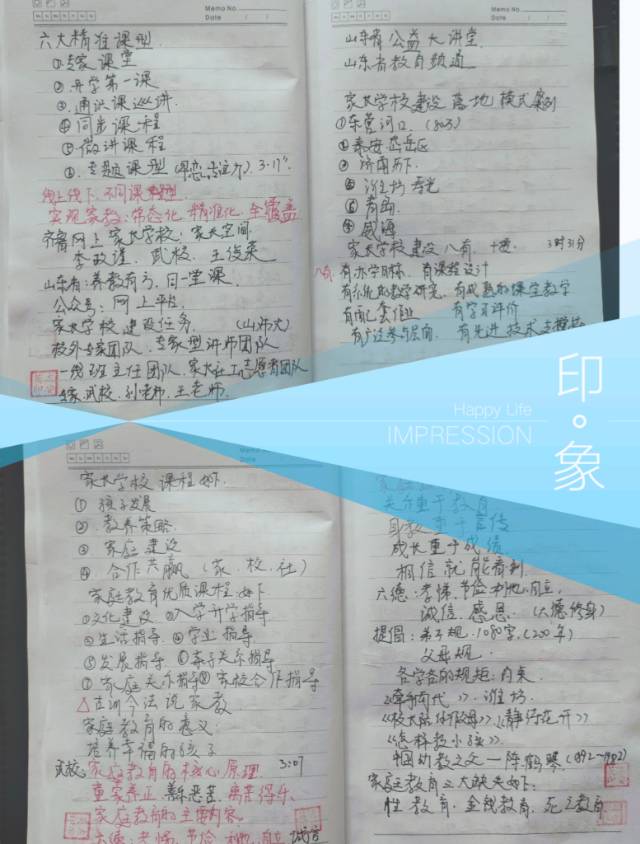 Memo No.
Date
六大精准课型
①专家课堂
②开学第一课
③通识课巡讲
④同步课程
⑤微讲课程
⑥专题课型
线上线下、不同课型
实现家教:常态化、精准化、全覆盖
齐鲁网上家长学校:家长空间
李政谨、武校、王俊菜
山东省:养教有方,日一堂课
公众号:网上平台
家长学校建设任务 (山师大)
校外专家团队、专家型讲师团队
一线班主任团队、家长社工志愿者团队
武校、孙老师、王老师
Memo No.
Date
山东省公益大讲堂
山东省教育频道
家长学校建设落地模式案例
①东营河口
②泰安岱岳区
③济南历下
④潍坊寿光
⑤青岛
⑥威海
家长学校建设八有、十 3时31分
八有:有办学目标、有课程设计
有教学研究、有成熟的课堂教学
有学习评价
有先进技术支撑
Happy Life
IMPRESSION
印
象
家长学校课程如下
①孩子发展
②教养策略
③家庭建设
④合作共赢(家、校、社)
家庭教育优质课程如下
①文化建设 ②入学升学指导
③生活指导 ④学业指导
⑤发展指导 ⑥亲子关系指导
⑦家庭关系指导⑧家校合作指导
△古训今法说家教
家庭教育的意义
培养幸福的孩子
武校:家庭教育的核心原理 3:07
重家养正、善乐恶苦、离苦得乐
家庭教育的主要内容
六德:孝悌、节俭、利他、自立、诚信
关系重于教育
身教重于言传
成长重于成绩
相信就能看到
六德:孝悌、节俭、利他、自立、
诚信、感恩 (六德修身)
提倡:弟子规、1080字
父母规
各学者的规矩:内来
潍坊
《静待花开》
《怎样教小孩》
中国幼教之父—陈鹤琴(1892~1982)
家庭教育三大缺失如下:
性教育、金钱教育、死亡教育